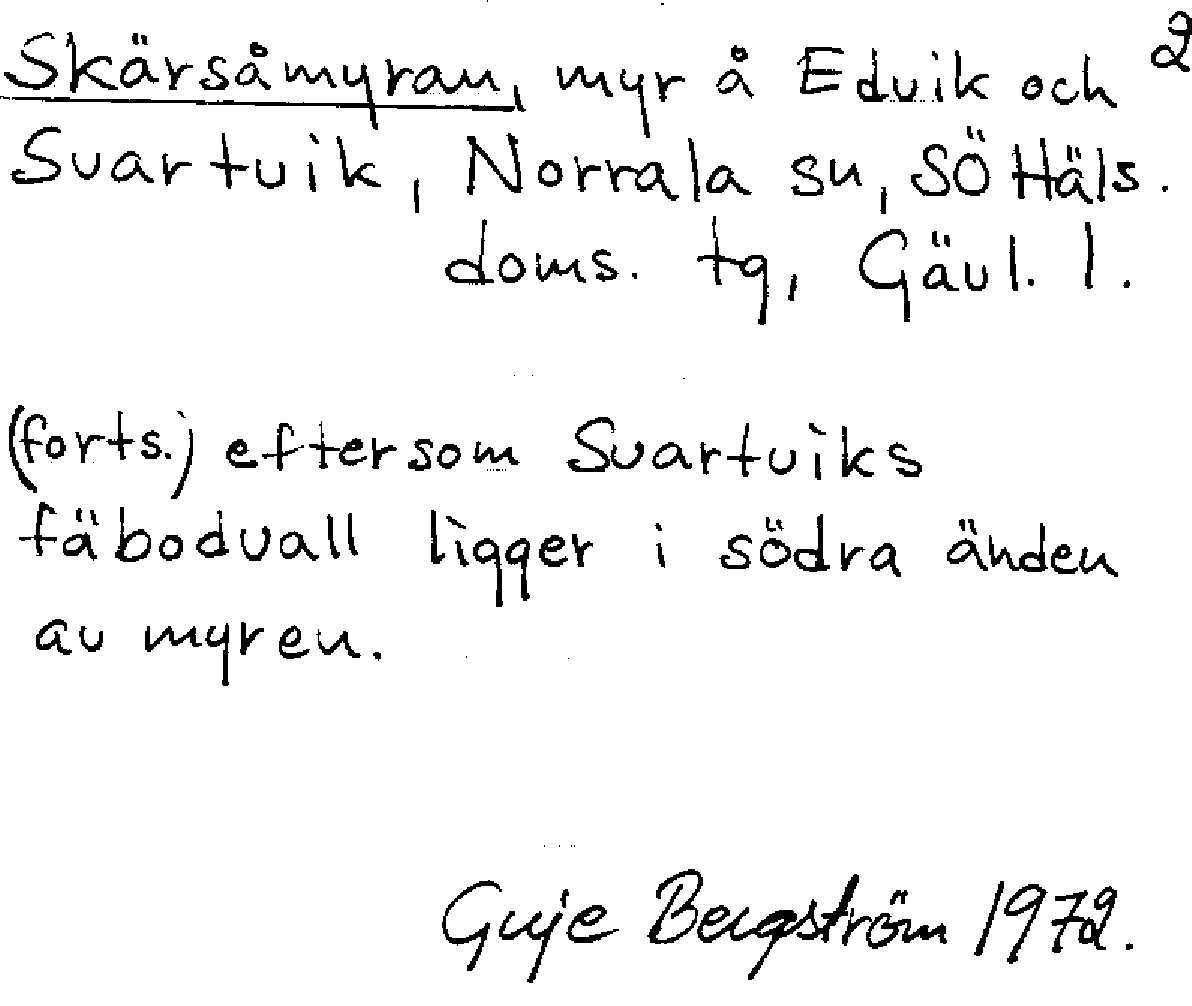 Skärsåmyran, myr å Edvik och 2
Svartvik, Norrala sn, SÖ Häls.
doms. tg, Gävl. l.
(forts.) eftersom Svartviks
fäbodvall ligger i södra änden
av myren.
Guje Bergström 1972.